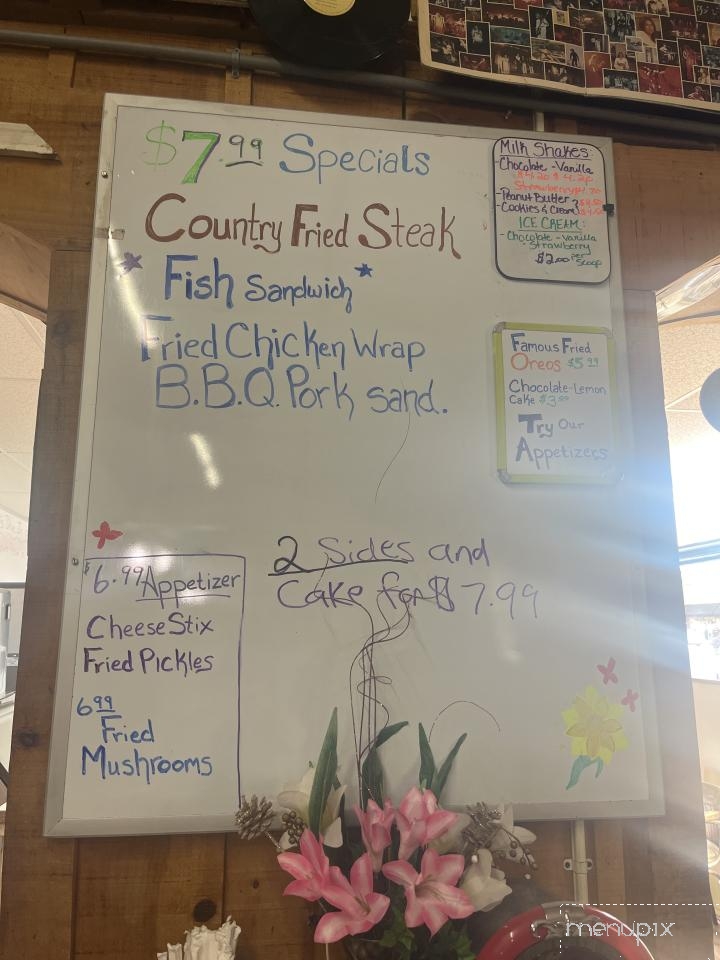 $7.99 Specials
Country Fried Steak
Fish Sandwich
Fried Chicken Wrap
B.B.Q. Pork sand.
2 Sides and
Cake for $7.99
$6.99 Appetizer
Cheese Stix
Fried Pickles
6 99
Fried
Mushrooms
Milk Shakes:
-Chocolate -Vanilla
$4.20 $4.20
Strawberry
-Peanut Butter
-Cookies & Cream
ICE CREAM:
-Chocolate -Vanilla
Strawberry
$2.00 per
Scoop
Famous Fried
Oreos $5.99
Chocolate-Lemon
Cake
Try Our
Appetizers
menupix